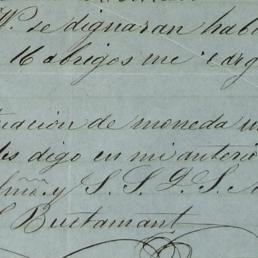 V. se dignaran hab
16 abrigos me
uacion de moneda
les digo en mi anterio
S. S. Q. S. M
Bustamant